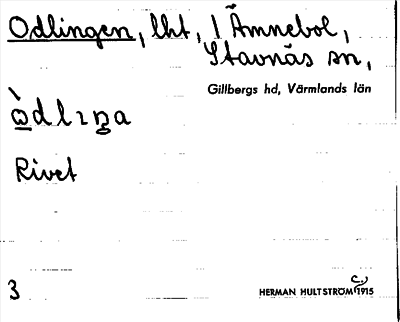 Odlingen, lht, 1 Ämnebol,
Stavnäs sn,
Gillbergs hd, Värmlands län
Rivet
3
HERMAN HULTSTRÖM c.) 1915